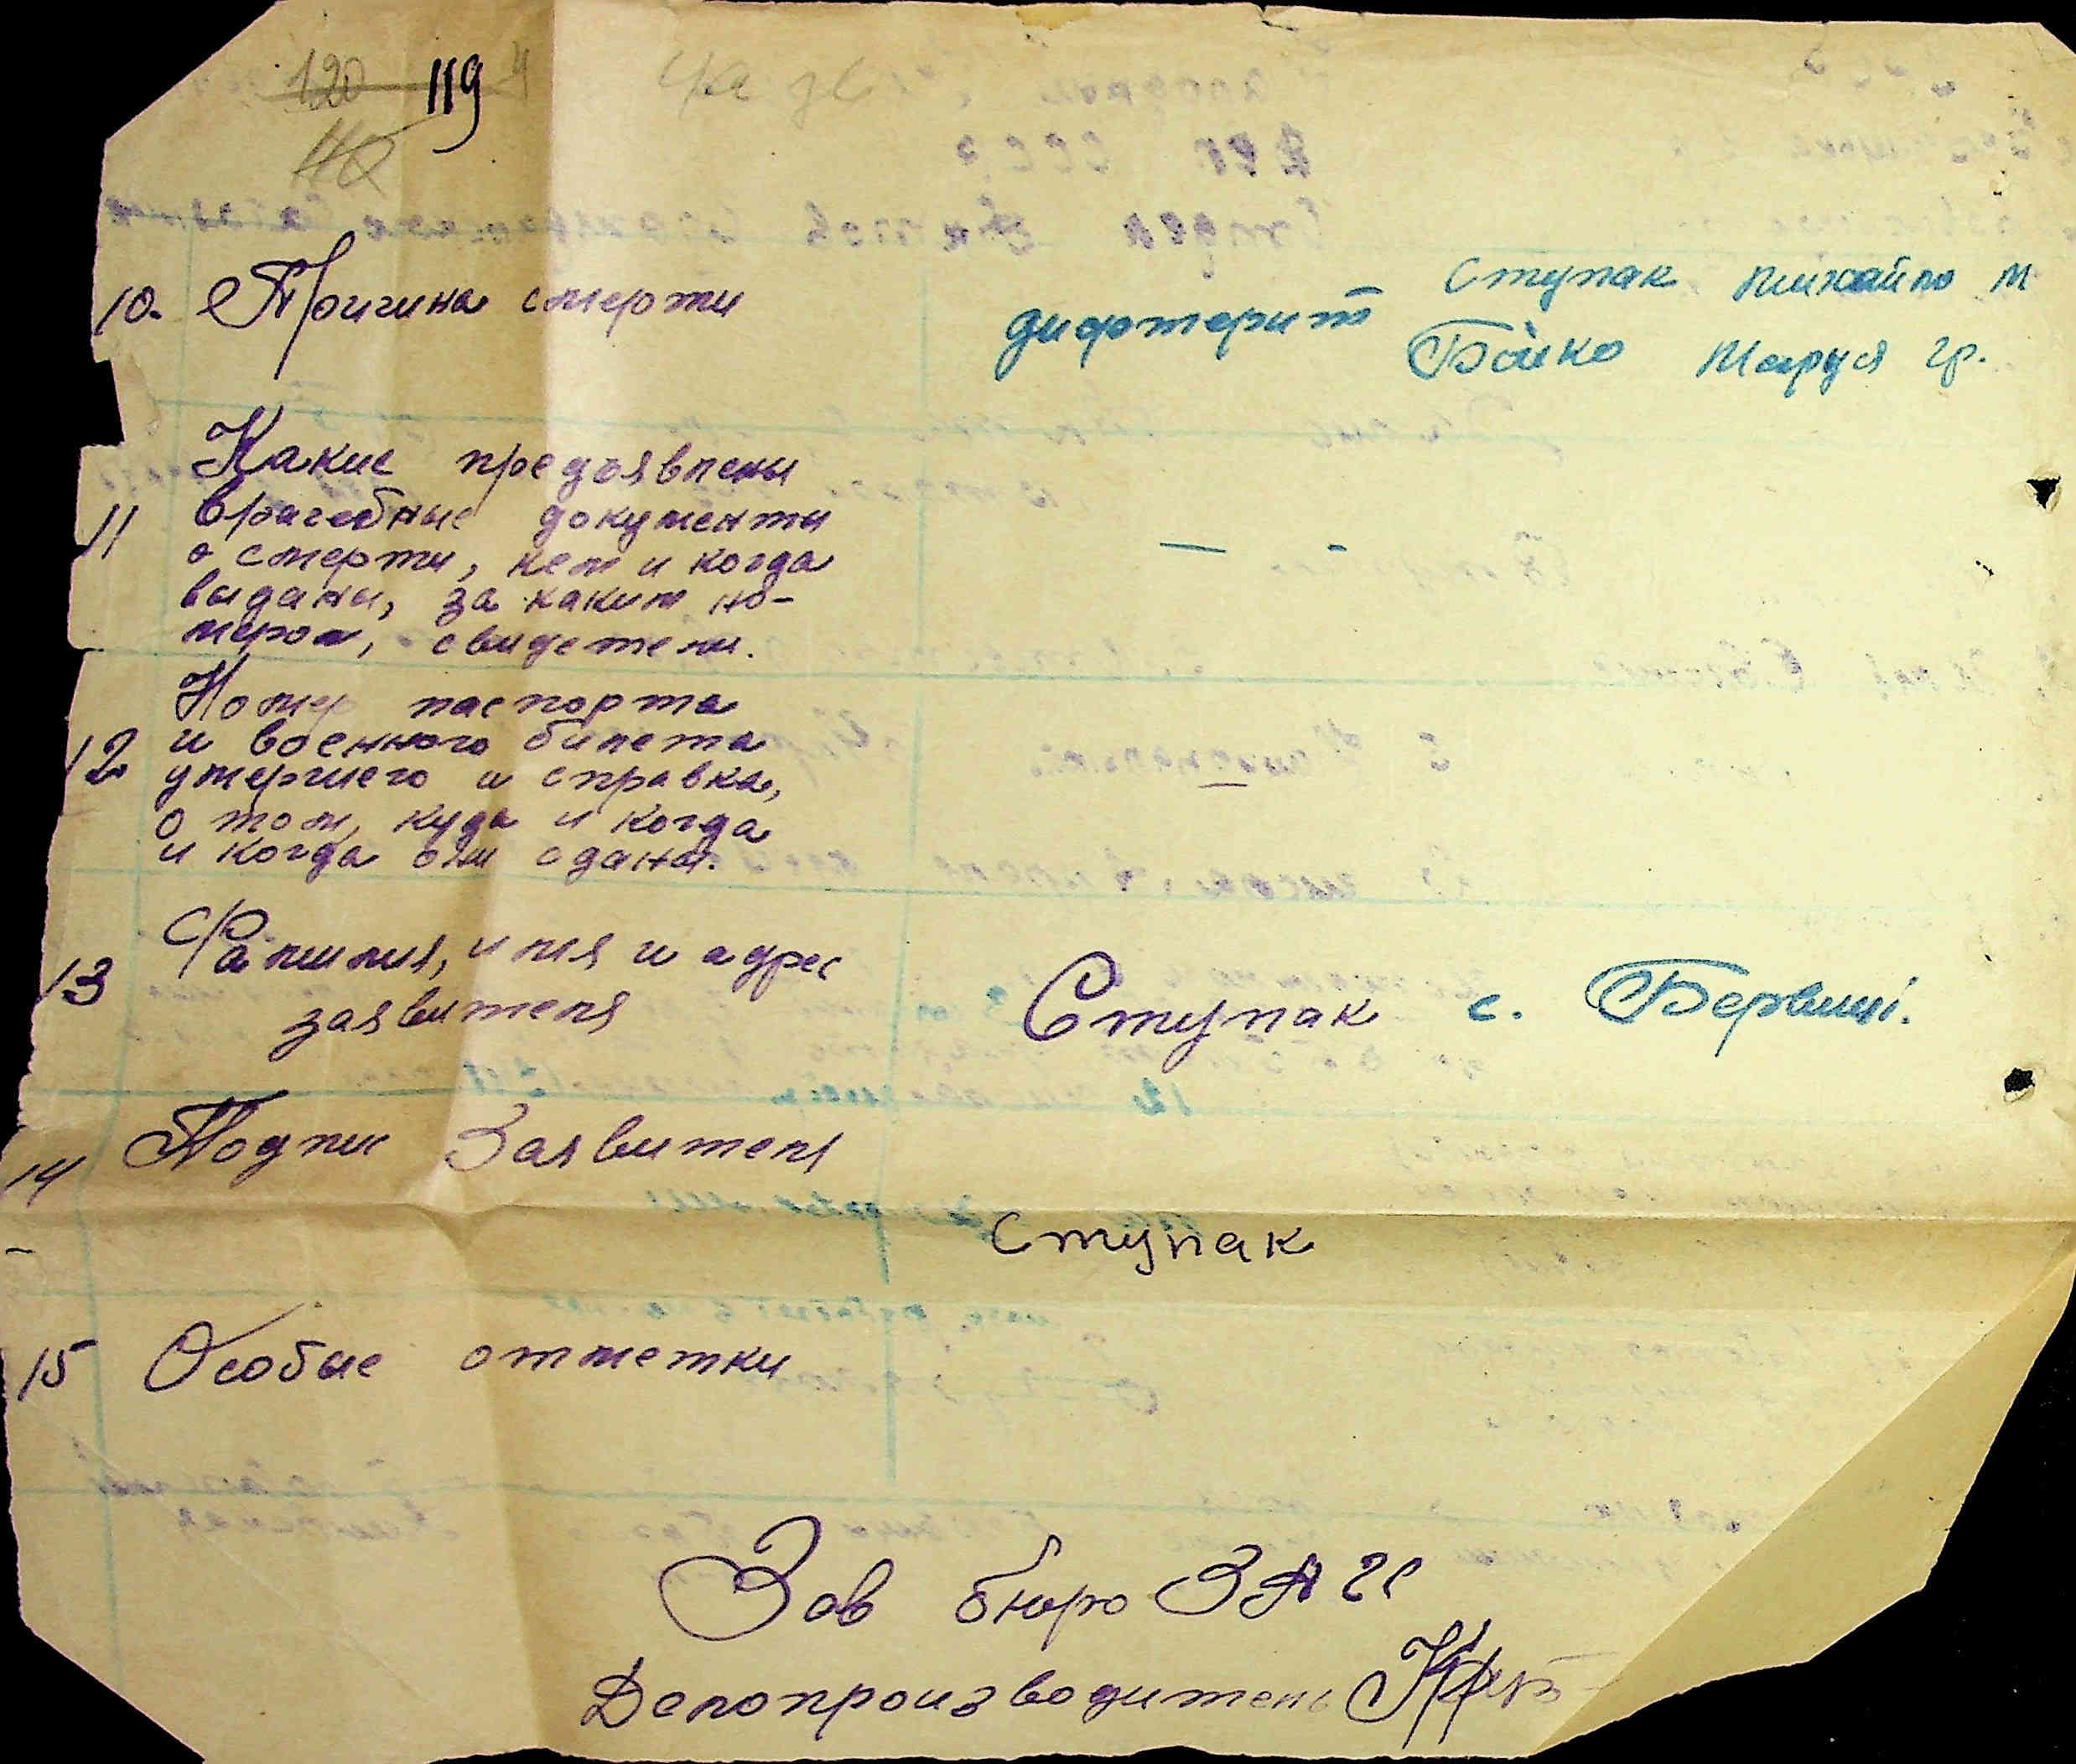 120 119
10. Причина смерти
дифтерит
Ступак Михайло М
Бойко Маруся гр.
Какие предоявлены
11 врачебные документы
о смерти, кем и когда
выданы, за каким но-
мером, свидетели.
Номер паспорта
12 и военного билета
умершего и справка,
о том, куда и когда
и когда они сданы.
Фамилия, имя и адрес
13 заявителя
Ступак с. Бервиці.
14 Подпис Заявителя
Ступак
15 Особые отметки
Зав бюро ЗАГС
Делопроизводитель